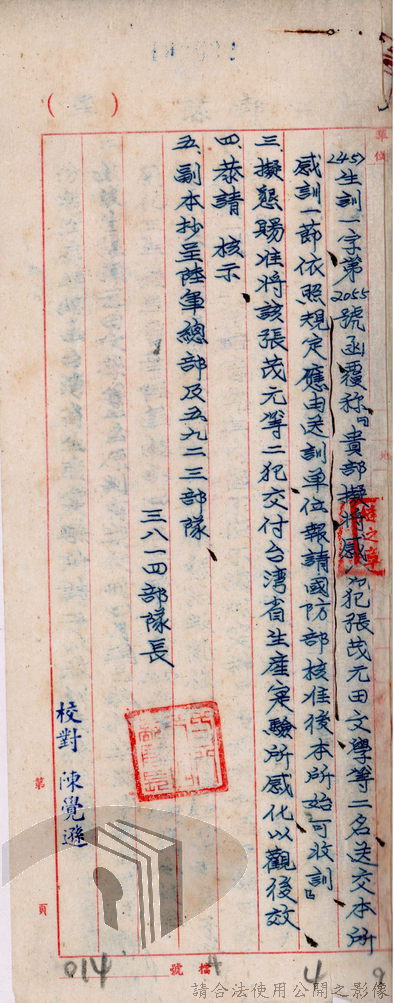 (45)生訓一字第2055號函覆称「貴部擬將感犯張茂元田文學等二名送交本所
感訓一節依照規定應由送訓单位報請國防部核准後本所始可收訓」
三、擬懇賜准將該張茂元等二犯交付台湾省生產實驗所感化以觀後效
四、恭請 核示
五、副本抄呈陸軍總部及五九二三部隊
三八一四部隊長
校對 陳覺遜
單位
之章
第
頁
檔號
014
4
9
請合法使用公開之影像